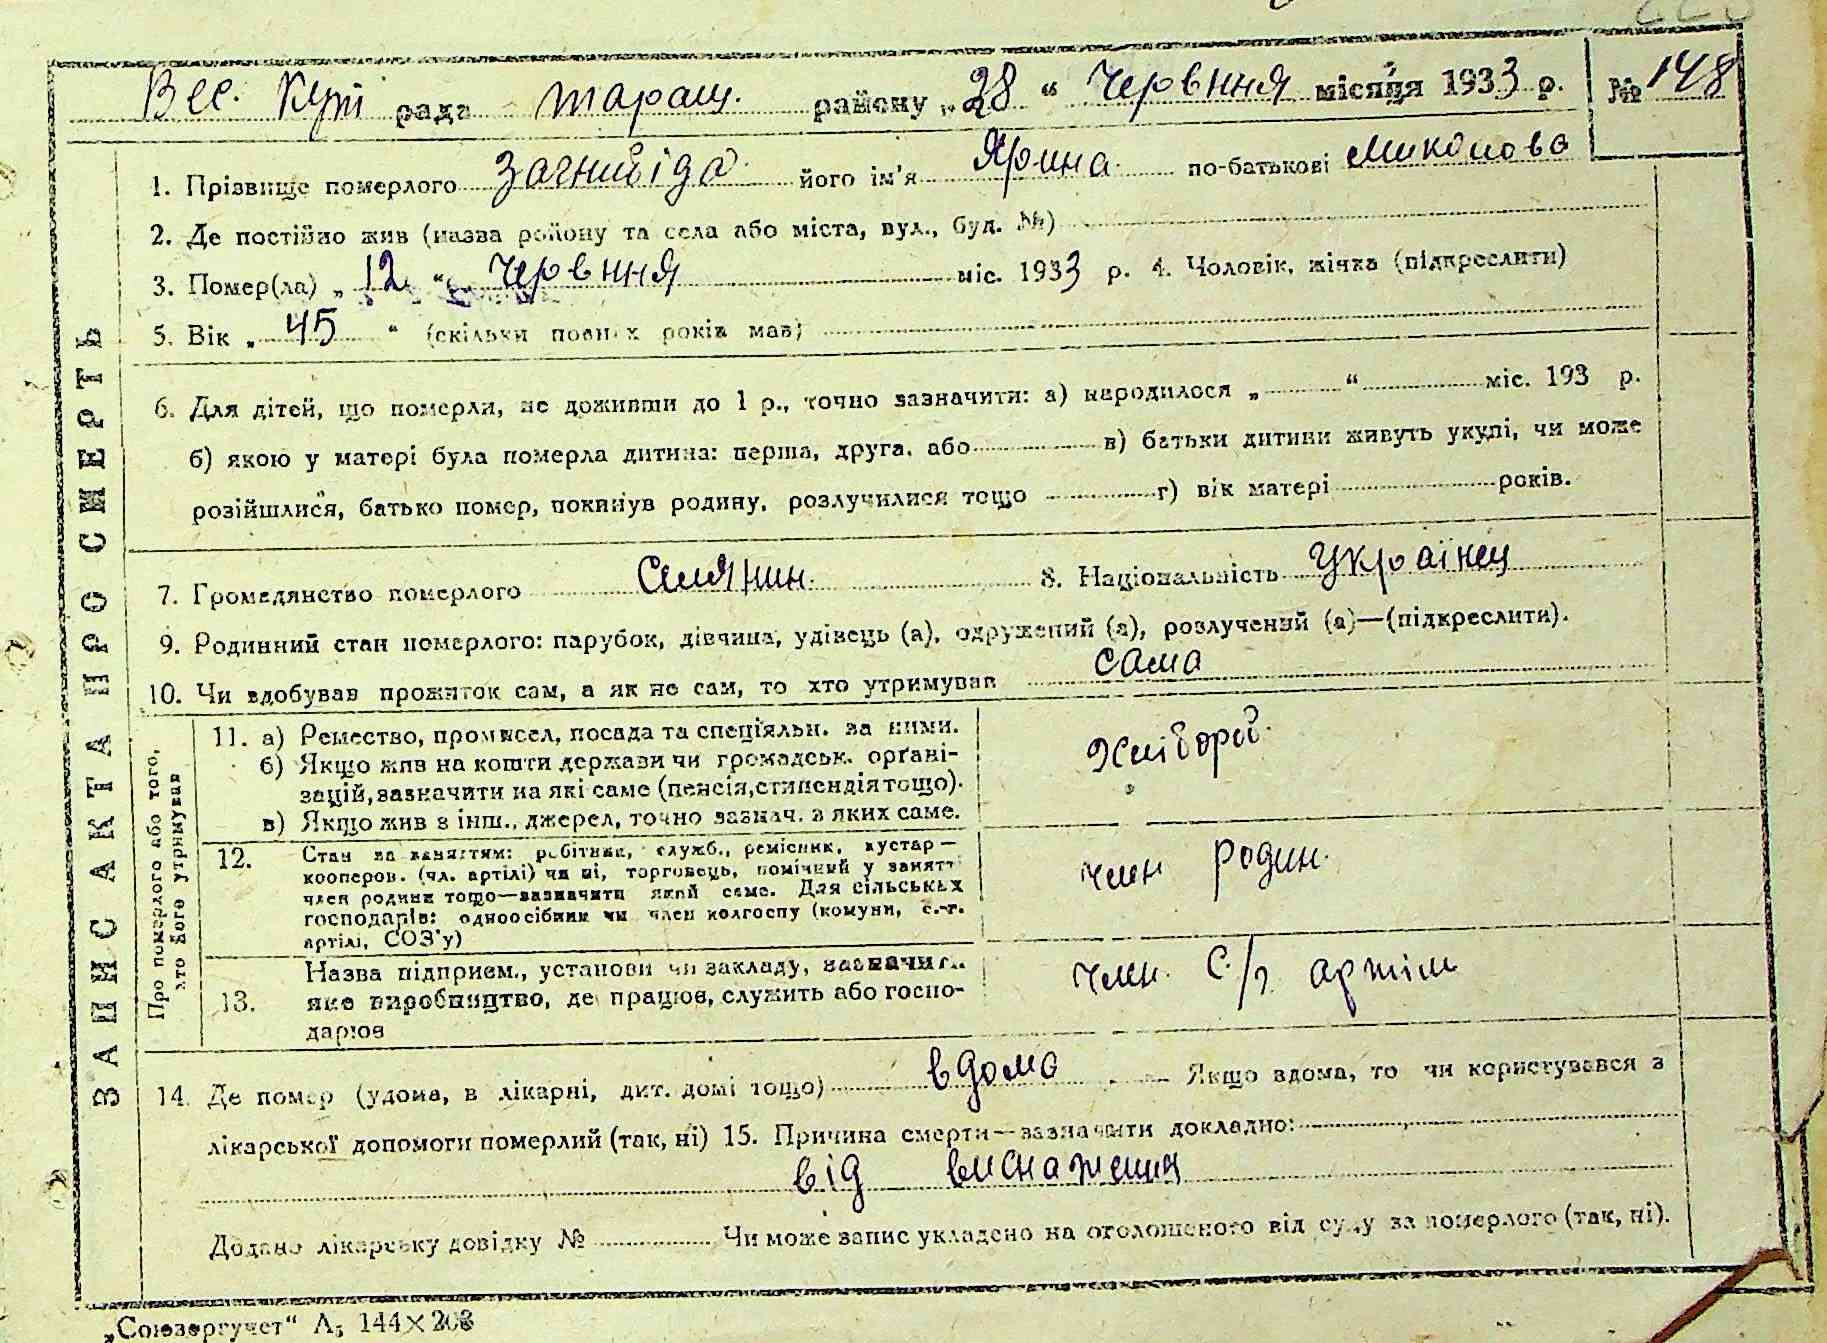 Вес. Кут рада таращ. району „28“ Червння місяця 1933 р. № 148
ЗАПИС АКТА ПРО СМЕРТЬ
1. Прізвище померлого його ім'я Ярина по-батькові Миколова
2. Де постійно жив (назва району та села або міста, вул., буд. №)
3. Помер(ла) „12“ Червння міс. 1933 р. 4. Чоловік, жінка (підкреслити)
5. Вік „45“ (скільки повних років мав)
6. Для дітей, що померли, не доживши до 1 р., точно зазначити: а) народилося „ “ міс. 193 р.
б) якою у матері була померла дитина: перша, друга, або в) батьки дитини живуть укупі, чи може
розійшлися, батько помер, покинув родину, розлучилися тощо г) вік матері років.
7. Громадянство померлого Селянин. 8. Національність Українец
9. Родинний стан померлого: парубок, дівчина, удівець (а), одружений (а), розлучений (а)—(підкреслити).
10. Чи вдобував прожиток сам, а як не сам, то хто утримував сама
Про померлого або того,
хто його утримував
11. а) Ремество, промисел, посада та спеціяльн. за ними.
б) Якщо жив на кошти держави чи громадськ. орґані-
зацій, зазначити на які саме (пенсія, стипендія тощо).
в) Якщо жив з інш., джерел, точно зазнач. з яких саме.
Хлібороб.
12. Стан за заняттям: робітник, служб., ремісник, кустар—
кооперов. (чл. артілі) чи ні, торговець, помічний у занятт
член родини тощо—зазначити який саме. Для сільських
господарів: одноосібник чи член колгоспу (комуни, с.-г.
артілі, СОЗ'у)
член родин.
13. Назва підприєм., установи чи закладу, зазначити
яке виробництво, де працює, служить або госпо-
дарює
член. С/г. артіли
14. Де помер (удома, в лікарні, дит. домі тощо) вдома Якщо вдома, то чи користувався з
лікарської допомоги померлий (так, ні) 15. Причина смерти—зазначити докладно:
від виснаження
Додано лікарську довідку № Чи може запис укладено на оголошеного від суду за померлого (так, ні).
„Союзоргучет“ А5 144×203